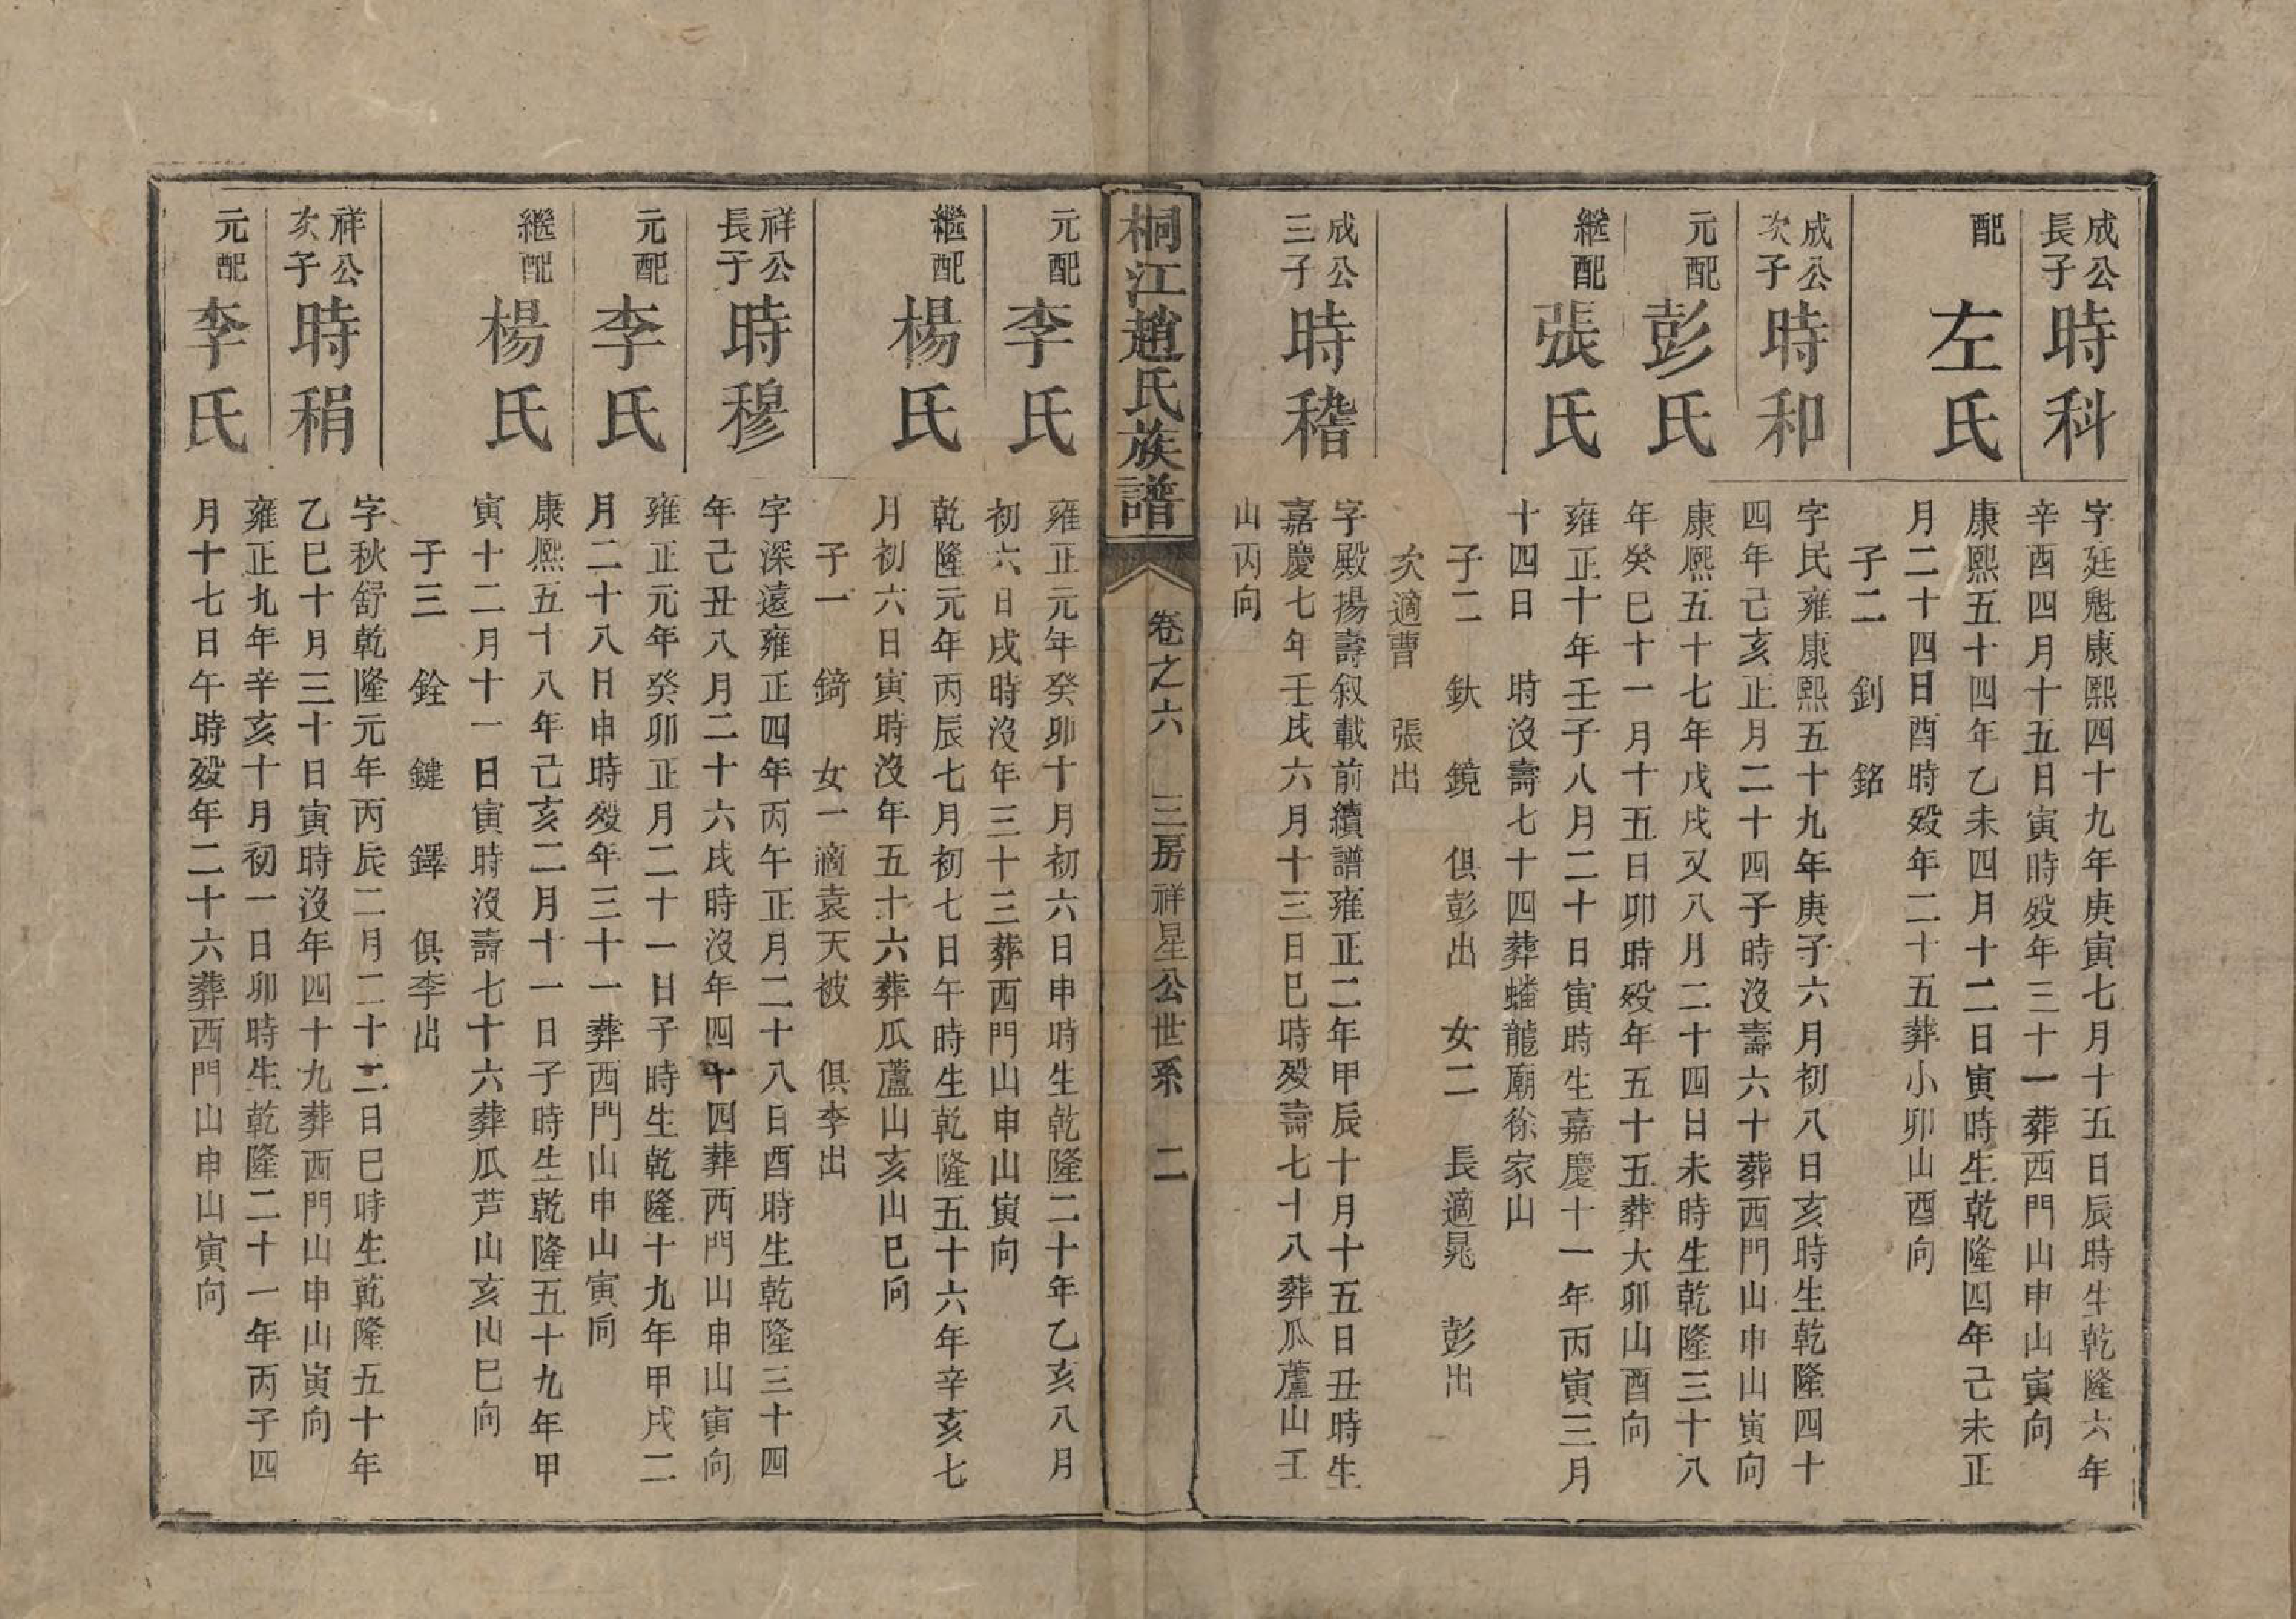 成公長子 時科
字廷魁康熙四十九年庚寅七月十五日辰時生乾隆六年
辛酉四月十五日寅時殁年三十一葬西門山申山寅向
配 左氏
康熙五十四年乙未四月十二日寅時生乾隆四年己未正
月二十四日酉時殁年二十五葬小卯山酉向
子二 釗 銘
成公次子 時和
字民雍康熙五十九年庚子六月初八日亥時生乾隆四十
四年己亥正月二十四子時沒壽六十葬西門山申山寅向
元配 彭氏
康熙五十七年戊戌又八月二十四日未時生乾隆三十八
年癸巳十一月十五日卯時殁年五十五葬大卯山酉向
繼配 張氏
雍正十年壬子八月二十日寅時生嘉慶十一年丙寅三月
十四日 時沒壽七十四葬蟠龍廟徐家山
子二 釱 鏡 俱彭出 女二 長適晁 彭出
次適曹 張出
成公三子 時稽
字殿揚壽叙載前續譜雍正二年甲辰十月十五日丑時生
嘉慶七年壬戌六月十三日巳時殁壽七十八葬瓜蘆山壬
山丙向
桐江趙氏族譜 卷之六 三房祥星公世系 二
元配 李氏
雍正元年癸卯十月初六日申時生乾隆二十年乙亥八月
初六日戌時沒年三十三葬西門山申山寅向
繼配 楊氏
乾隆元年丙辰七月初七日午時生乾隆五十六年辛亥七
月初六日寅時沒年五十六葬瓜蘆山亥山巳向
子一 錡 女一適袁天被 俱李出
祥公長子 時穆
字深遠雍正四年丙午正月二十八日酉時生乾隆三十四
年己丑八月二十六戌時沒年四十四葬西門山申山寅向
元配 李氏
雍正元年癸卯正月二十一日子時生乾隆十九年甲戌二
月二十八日申時殁年三十一葬西門山申山寅向
繼配 楊氏
康熙五十八年己亥二月十一日子時生乾隆五十九年甲
寅十二月十一日寅時沒壽七十六葬瓜芦山亥山巳向
子三 銓 鍵 鐸 俱李出
祥公次子 時稍
字秋舒乾隆元年丙辰二月二十二日巳時生乾隆五十年
乙巳十月三十日寅時沒年四十九葬西門山申山寅向
元配 李氏
雍正九年辛亥十月初一日卯時生乾隆二十一年丙子四
月十七日午時殁年二十六葬西門山申山寅向